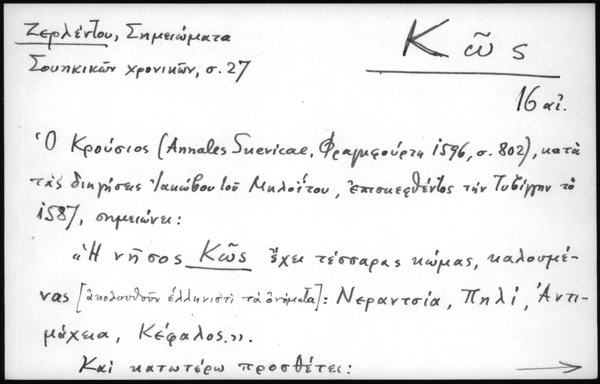 Ζερλέντου, Σημειώματα
Σουηκικῶν χρονικῶν, σ. 27
Κῶς
16 αἰ.
Ὁ Κρούσιος (Annales Suevicae, Φραγκφούρτη 1596, σ. 802), κατὰ
τὰς διηγήσεις Ἰακώβου τοῦ Μηλοΐτου, ἐπισκεφθέντος τὴν Τυβίγγην τὸ
1587, σημειώνει:
«Ἡ νῆσος Κῶς ἔχει τέσσαρας κώμας, καλουμέ-
νας [ἀκολουθοῦν ἑλληνιστὶ τὰ ὀνόματα]: Νεραντσία, Πηλί, Ἀντι-
μάχεια, Κέφαλος».
Καὶ κατωτέρω προσθέτει:
→